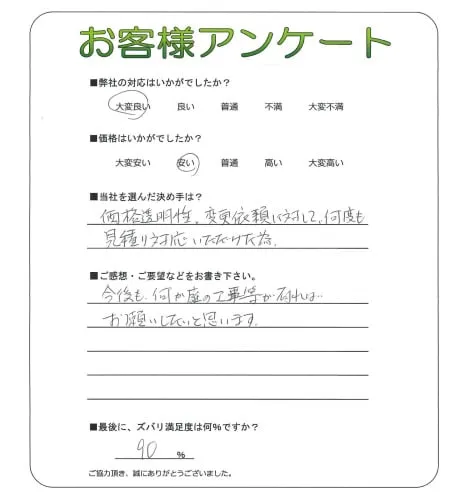 お客様アンケート
■弊社の対応はいかがでしたか？
大変良い 良い 普通 不満 大変不満
■価格はいかがでしたか？
大変安い 安い 普通 高い 大変高い
■当社を選んだ決め手は？
価格透明性、変更依頼に対して、何度も
見積り対応いただけた為。
■ご感想・ご要望などをお書き下さい。
今後も、何か庭の工事等が有れば…
お願いしたいと思います。
■最後に、ズバリ満足度は何％ですか？
90 ％
ご協力頂き、誠にありがとうございました。